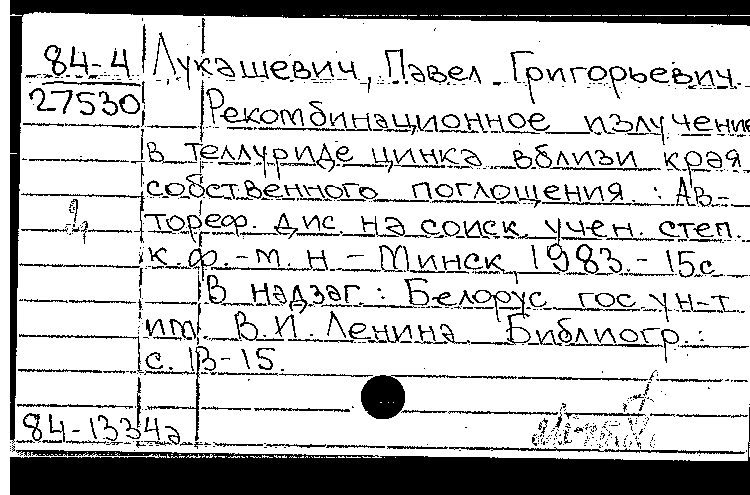 84-4 Лукашевич, Павел Григорьевич
27530 Рекомбинационное излучение
в теллуриде цинка вблизи края
собственного поглощения : Ав-
тореф. дис. на соиск. учен. степ.
к. ф.-м. н - Минск, 1983. - 15с
В надзаг. : Белорус гос ун-т
им. В. И. Ленина. Библиогр. :
с. 13-15.
84-1334а